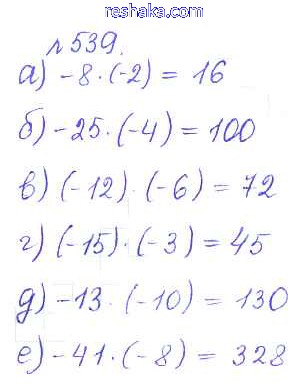 reshaka.com
№539.
а) -8 · (-2) = 16
б) -25 · (-4) = 100
в) (-12) · (-6) = 72
г) (-15) · (-3) = 45
д) -13 · (-10) = 130
е) -41 · (-8) = 328